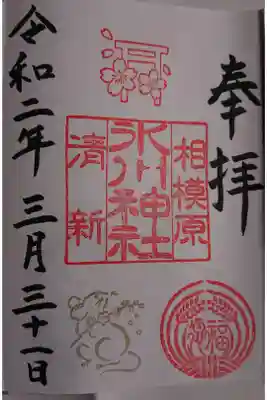 奉拝
相模原
氷川神社
清新
福
令和二年三月三十一日